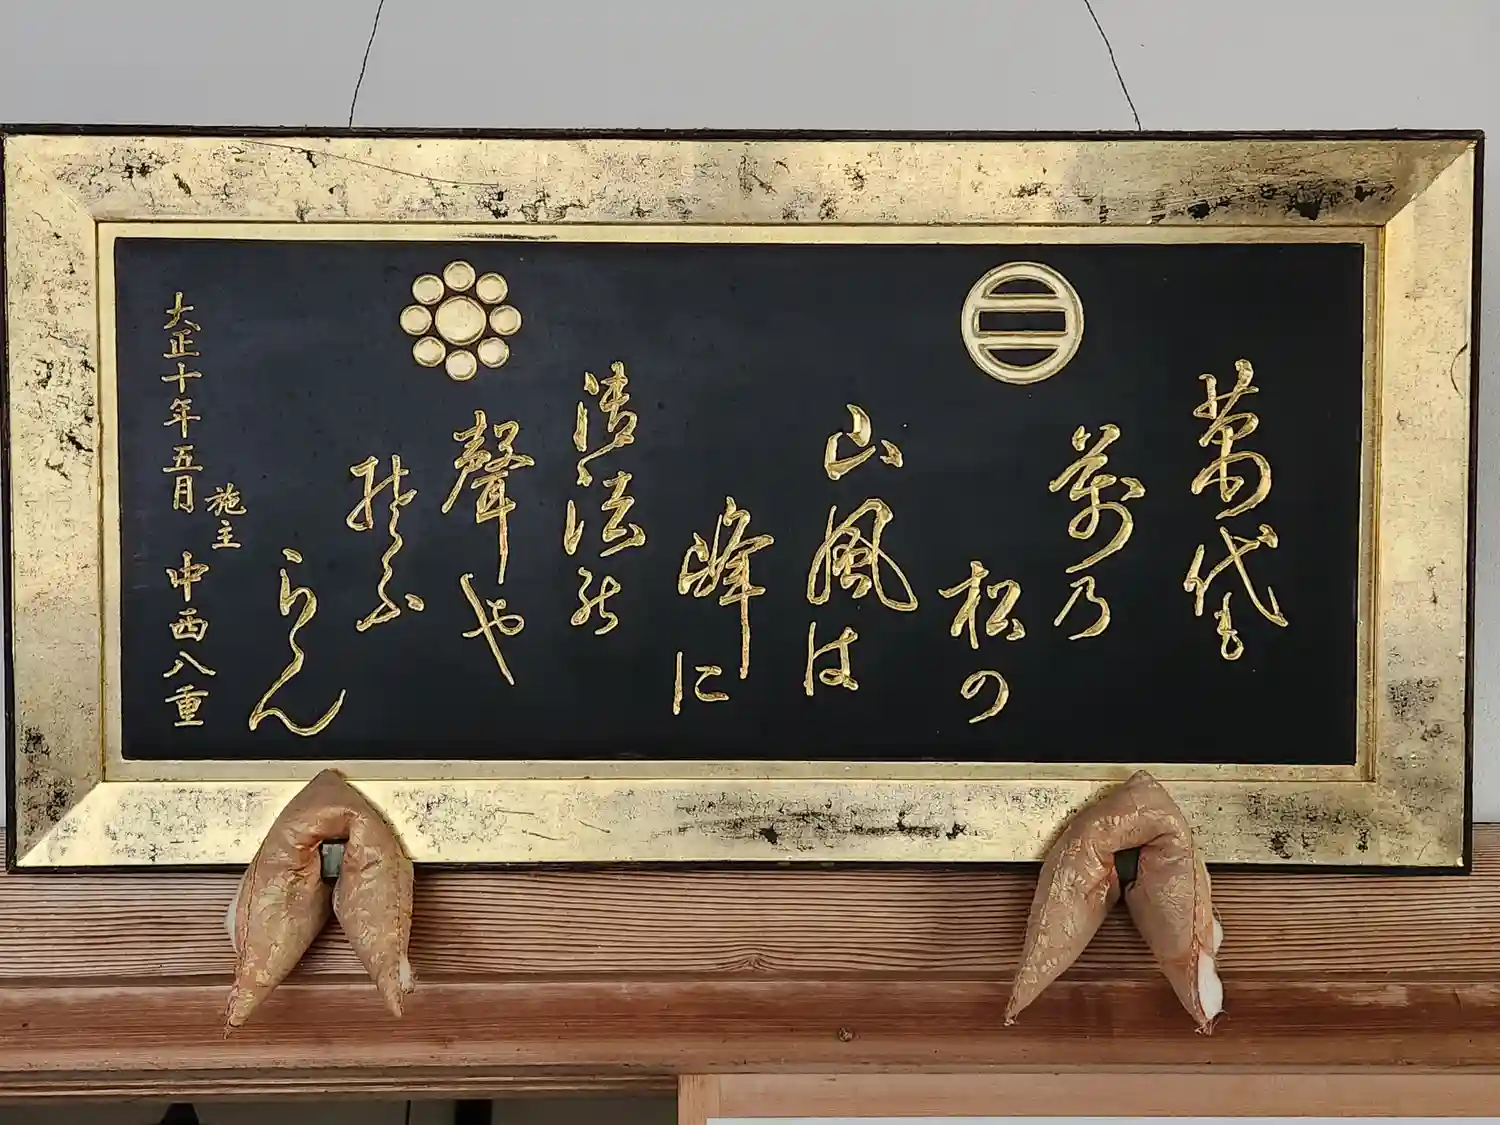 萬代も
萬乃
松の
山風は
峰に
法能
聲や
ふ
らん
施主
大正十年五月 中西八重